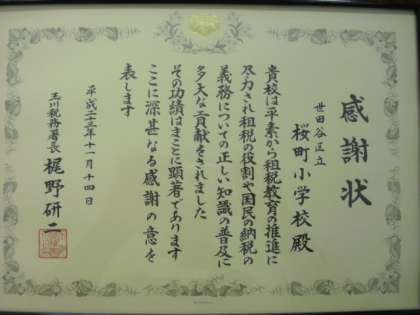 感謝状
世田谷区立
桜町小学校殿
貴校は平素から租税教育の推進に
尽力され租税の役割や国民の納税の
義務についての正しい知識の普及に
多大な貢献をされました
その功績はまことに顕著であります
ここに深甚なる感謝の意を
表します
平成二十三年十一月十四日
玉川税務署長
梶野研二